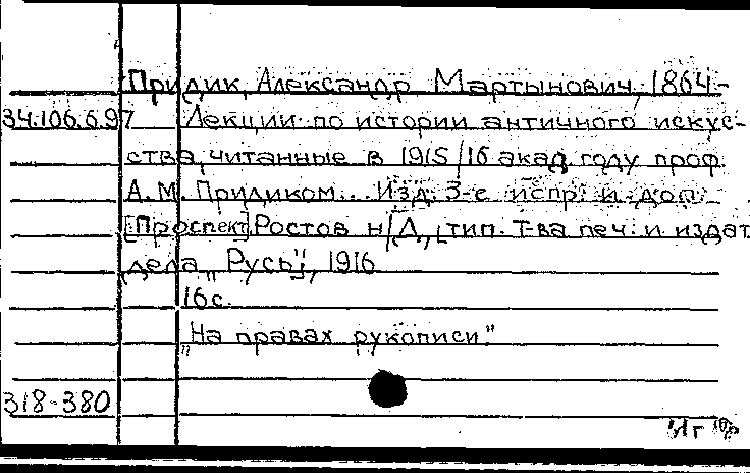 Придик, Александр Мартынович, 1864-
34.106.6.97 Лекции по истории античного искус-
ства, читанные в 1915/16 акад. году проф.
А.М. Придиком... Изд. 3-е испр. и доп.
[Проспект] Ростов н/Д, [тип. Т-ва печ. и издат.
дела „Русь"], 1916
16 с.
„На правах рукописи."
318-380